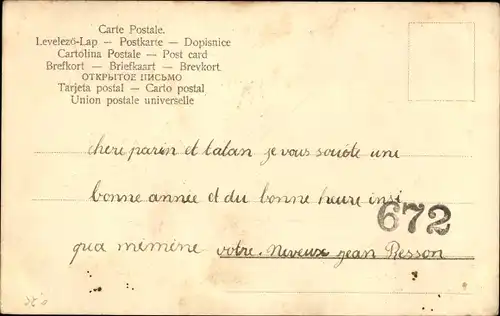 Carte Postale.
Levelező-Lap — Postkarte — Dopisnice
Cartolina Postale — Post card
Brefkort — Briefkaart — Brevkort
ОТКРЫТОЕ ПИСЬМО
Tarjeta postal — Carto postal
Union postale universelle
chere parin et tatan je vous souète une
bonne année et du bonne heure insi
672
qua mémène votre. Neveux jean Resson